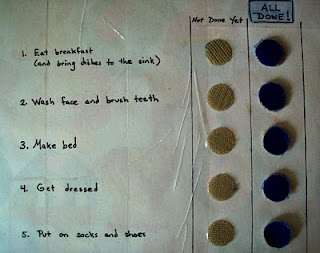 Not Done Yet
ALL DONE!
1. Eat breakfast
(and bring dishes to the sink)
2. Wash face and brush teeth
3. Make bed
4. Get dressed
5. Put on socks and shoes